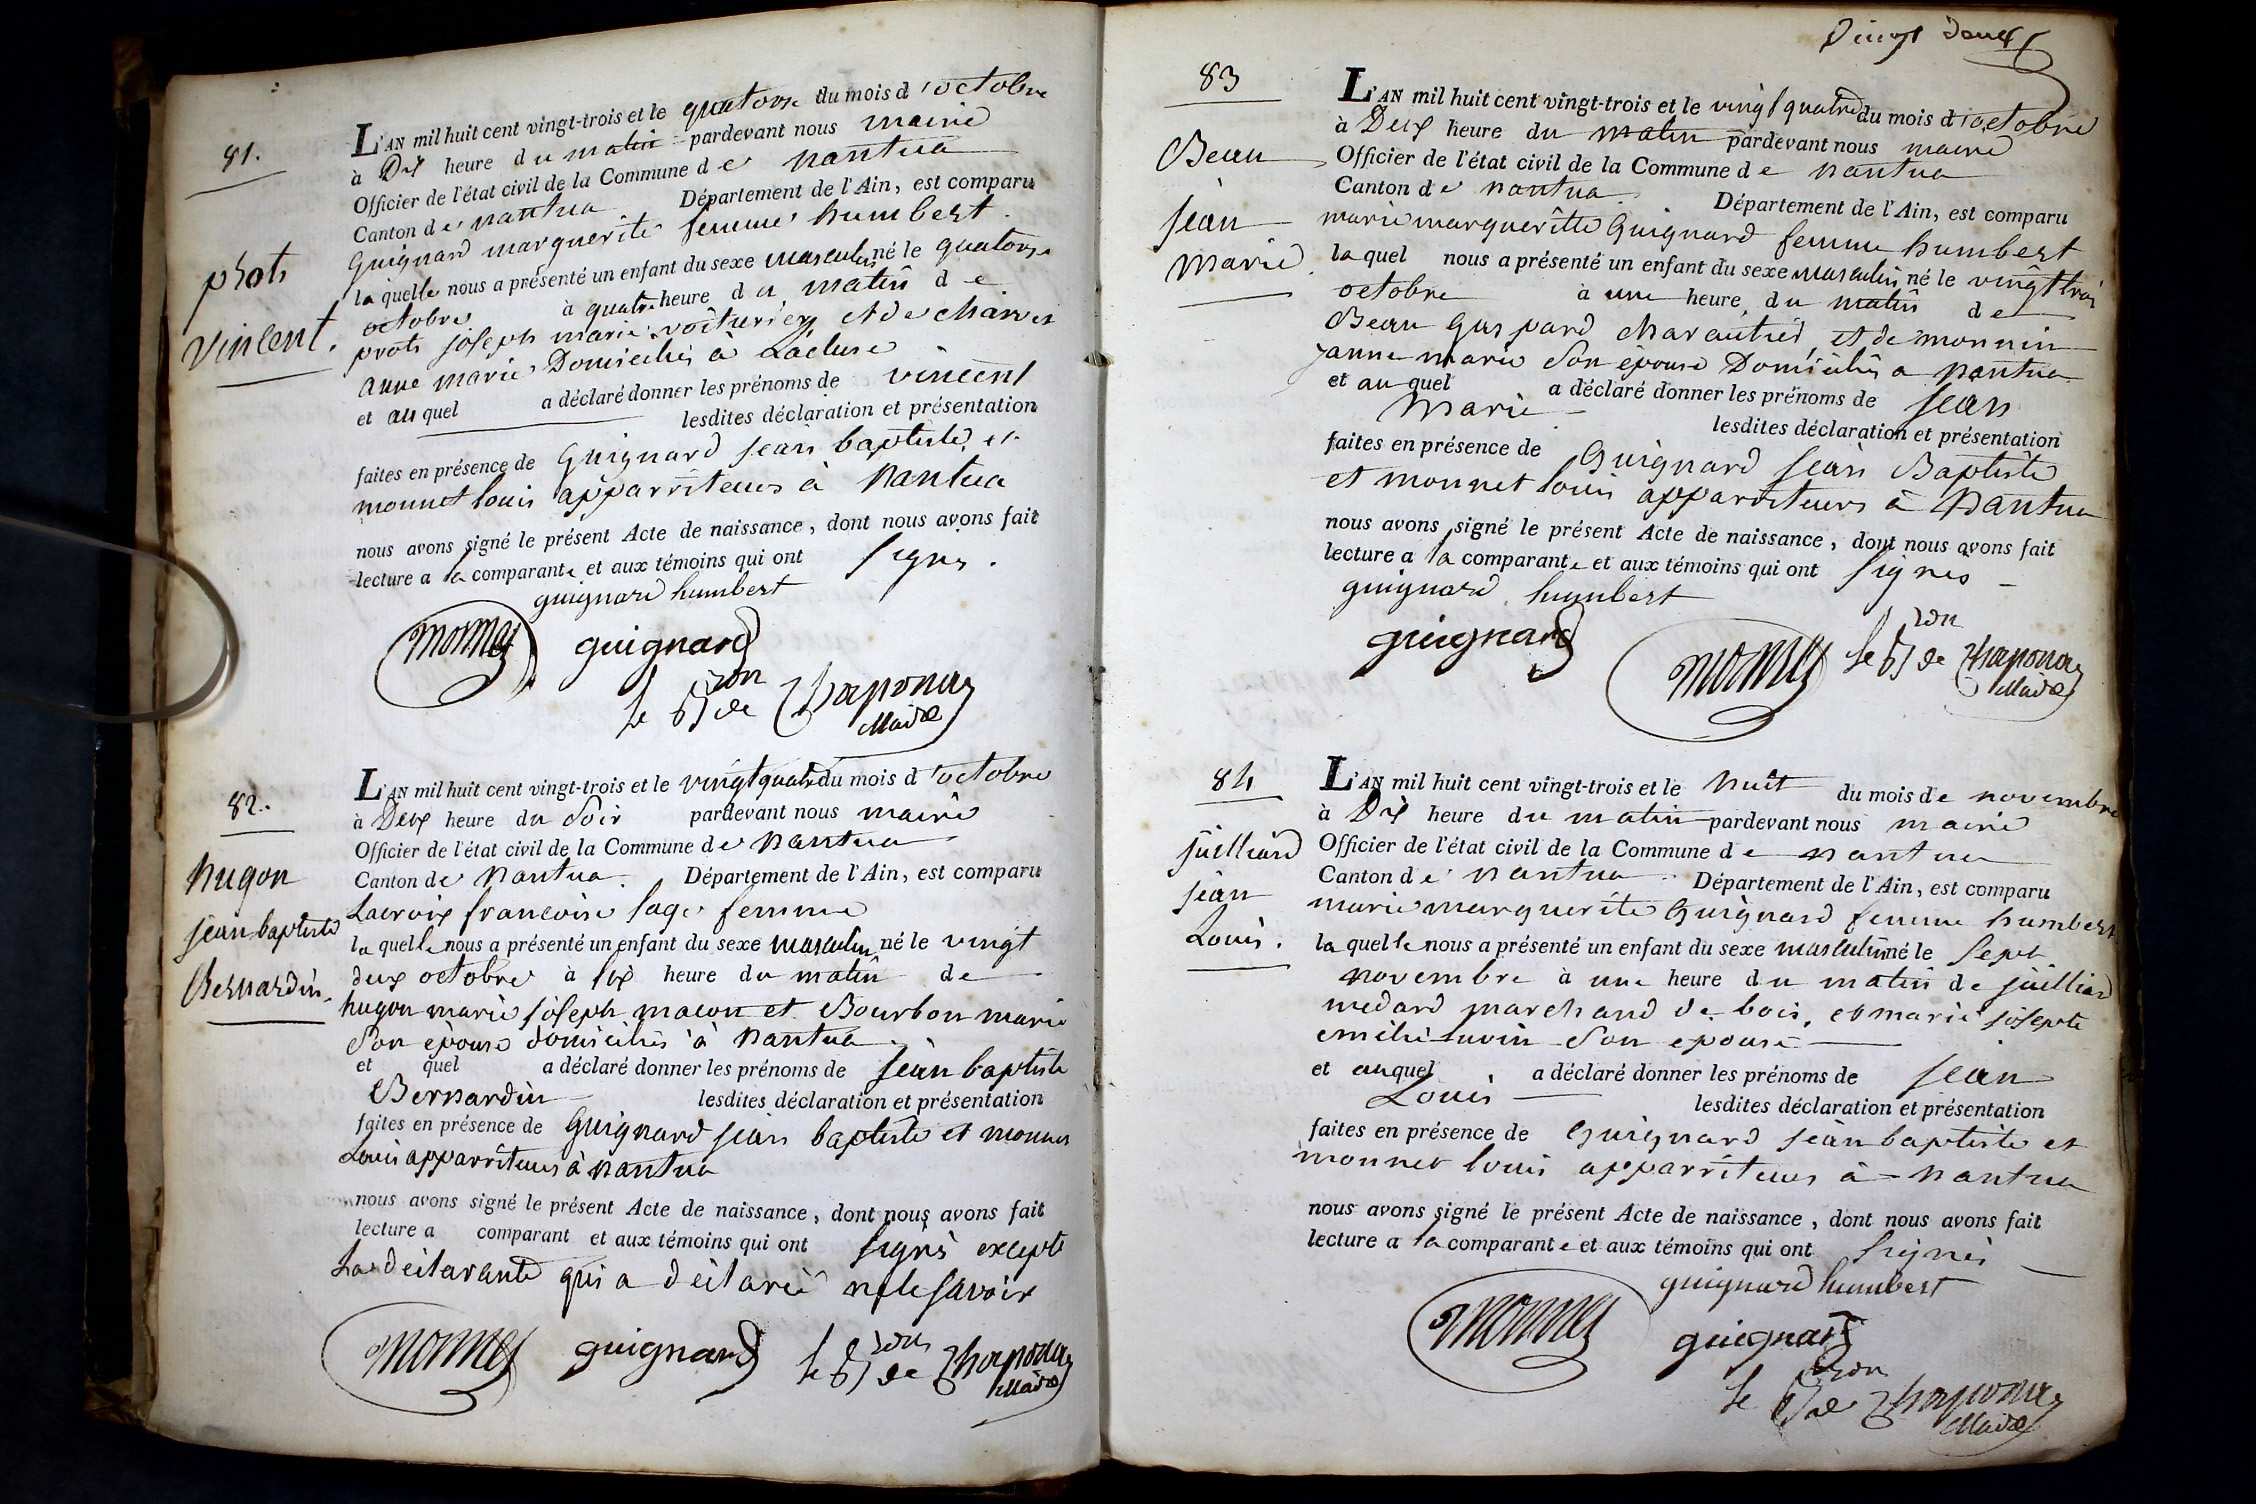 81.
prots
vincent.
L'AN mil huit cent vingt-trois et le quatorze du mois d'octobre
à Dix heure du matin pardevant nous maire
Officier de l'état civil de la Commune de nantua
Canton de nantua Département de l'Ain, est comparu
Guignard marguerite femme humbert.
laquelle nous a présenté un enfant du sexe masculin né le quatorze
octobre à quatre heure du matin de
prots joseph marie voiturier, et de
anne marie Domiciliés à Lacluse
et au quel a déclaré donner les prénoms de vincent
lesdites déclaration et présentation
faites en présence de Guignard jean baptiste, et
monnet louis apparriteurs à nantua
nous avons signé le présent Acte de naissance, dont nous avons fait
lecture a la comparante et aux témoins qui ont signés.
guignard humbert
monnet guignard
le Bron de Chaponay
Maire
82.
hugon
jean baptiste
Bernardin.
L'AN mil huit cent vingt-trois et le vingt quatre du mois d'octobre
à Deux heure du Soir pardevant nous maire
Officier de l'état civil de la Commune de nantua
Canton de nantua. Département de l'Ain, est comparu
Lacroix francoise sage femme
laquelle nous a présenté un enfant du sexe masculin né le vingt
deux octobre à six heure du matin de
hugon marie joseph macon et Bourbon marie
Son épouse domiciliés à nantua
et quel a déclaré donner les prénoms de jean baptiste
Bernardin lesdites déclaration et présentation
faites en présence de Guignard jean baptiste et monnet
Louis apparriteurs à nantua
nous avons signé le présent Acte de naissance, dont nous avons fait
lecture a comparant et aux témoins qui ont signés excepté
La déclarante qui a déclaré ne le savoir
monnet guignard le Bron de Chaponay
Maire
vingt deux
83
Beau
jean
marie
L'AN mil huit cent vingt-trois et le vingt quatre du mois d'octobre
à Deux heure du matin pardevant nous maire
Officier de l'état civil de la Commune de nantua
Canton de nantua. Département de l'Ain, est comparu
marie margueritte Guignard femme humbert
laquel nous a présenté un enfant du sexe masculin né le vingt trois
octobre à une heure du matin de
Beau Gaspard et de monnin
janne marie Son épouse Domiciliés a nantua
et au quel a déclaré donner les prénoms de jean
Marie lesdites déclaration et présentation
faites en présence de Guignard jean Baptiste
et monnet louis apparriteurs à nantua
nous avons signé le présent Acte de naissance, dont nous avons fait
lecture a la comparante et aux témoins qui ont signés
guignard humbert
guignard monnet le Bron de Chaponay
Maire
84
juilliard
jean
Louis.
L'AN mil huit cent vingt-trois et le huit du mois de novembre
à Dix heure du matin pardevant nous maire
Officier de l'état civil de la Commune de nantua
Canton de nantua. Département de l'Ain, est comparu
marie marguerite Guignard femme humbert
laquelle nous a présenté un enfant du sexe masculin né le Sept
novembre à une heure du matin de juilliard
medard marchand de bois, et marie josepte
emelie Son epouse
et auquel a déclaré donner les prénoms de jean
Louis lesdites déclaration et présentation
faites en présence de Guignard jean baptiste et
monnet louis apparriteurs à nantua
nous avons signé le présent Acte de naissance, dont nous avons fait
lecture a la comparante et aux témoins qui ont signés
guignard humbert
monnet guignard
le Bron de Chaponay
Maire